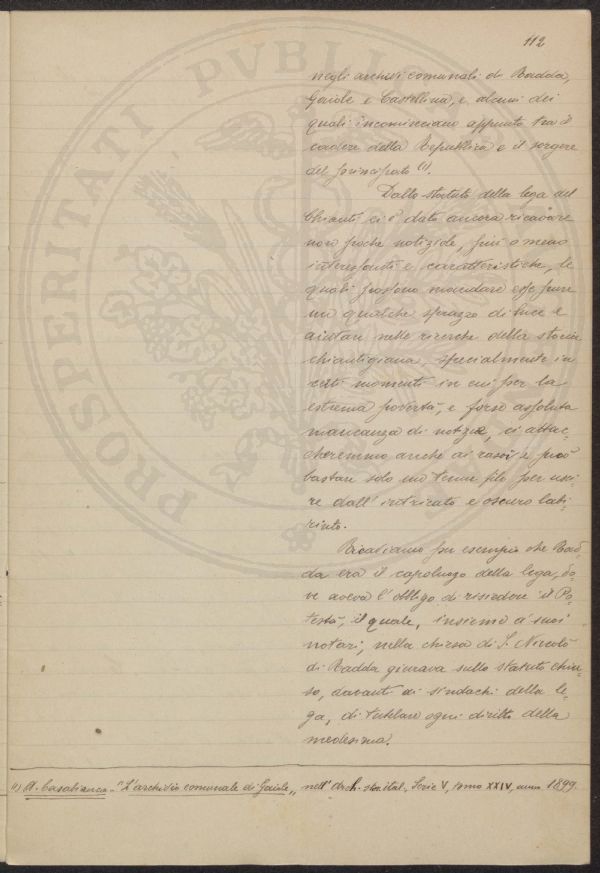 112
negli archivi comunali di Radda,
Gaiole e Castellina, e alcuni dei
quali incominciano appunto tra il
cadere della Repubblica e il sorgere
del principato (1).
Dallo statuto della lega del
Chianti ci è dato ancora ricavare
non poche notizie, più o meno
interessanti e caratteristiche, le
quali possono mandare esse pure
un qualche sprazzo di luce e
aiutare nelle ricerche della storia
chiantigiana, specialmente in
certi momenti in cui per la
estrema povertà, e forse assoluta
mancanza di notizie, ci attac-
cheremmo anche ai rasoi e può
bastare solo un tenue filo per usci-
re dall'intricato e oscuro labi-
rinto.
Ricaviamo per esempio che Rad-
da era il capoluogo della lega, do-
ve aveva l'obbligo di risiedere il Po-
testà, il quale, insieme a' suoi
notari, nella chiesa di S. Niccolò
di Radda giurava sullo statuto chiu-
so, davanti ai sindachi della le-
ga, di tutelare ogni diritto della
medesima.
(1) A. Casabianca - "L'archivio comunale di Gaiole" nell'Arch. stor. ital., Serie V, tomo XXIV, anno 1899.
PROSPERITATI PVBLICAE